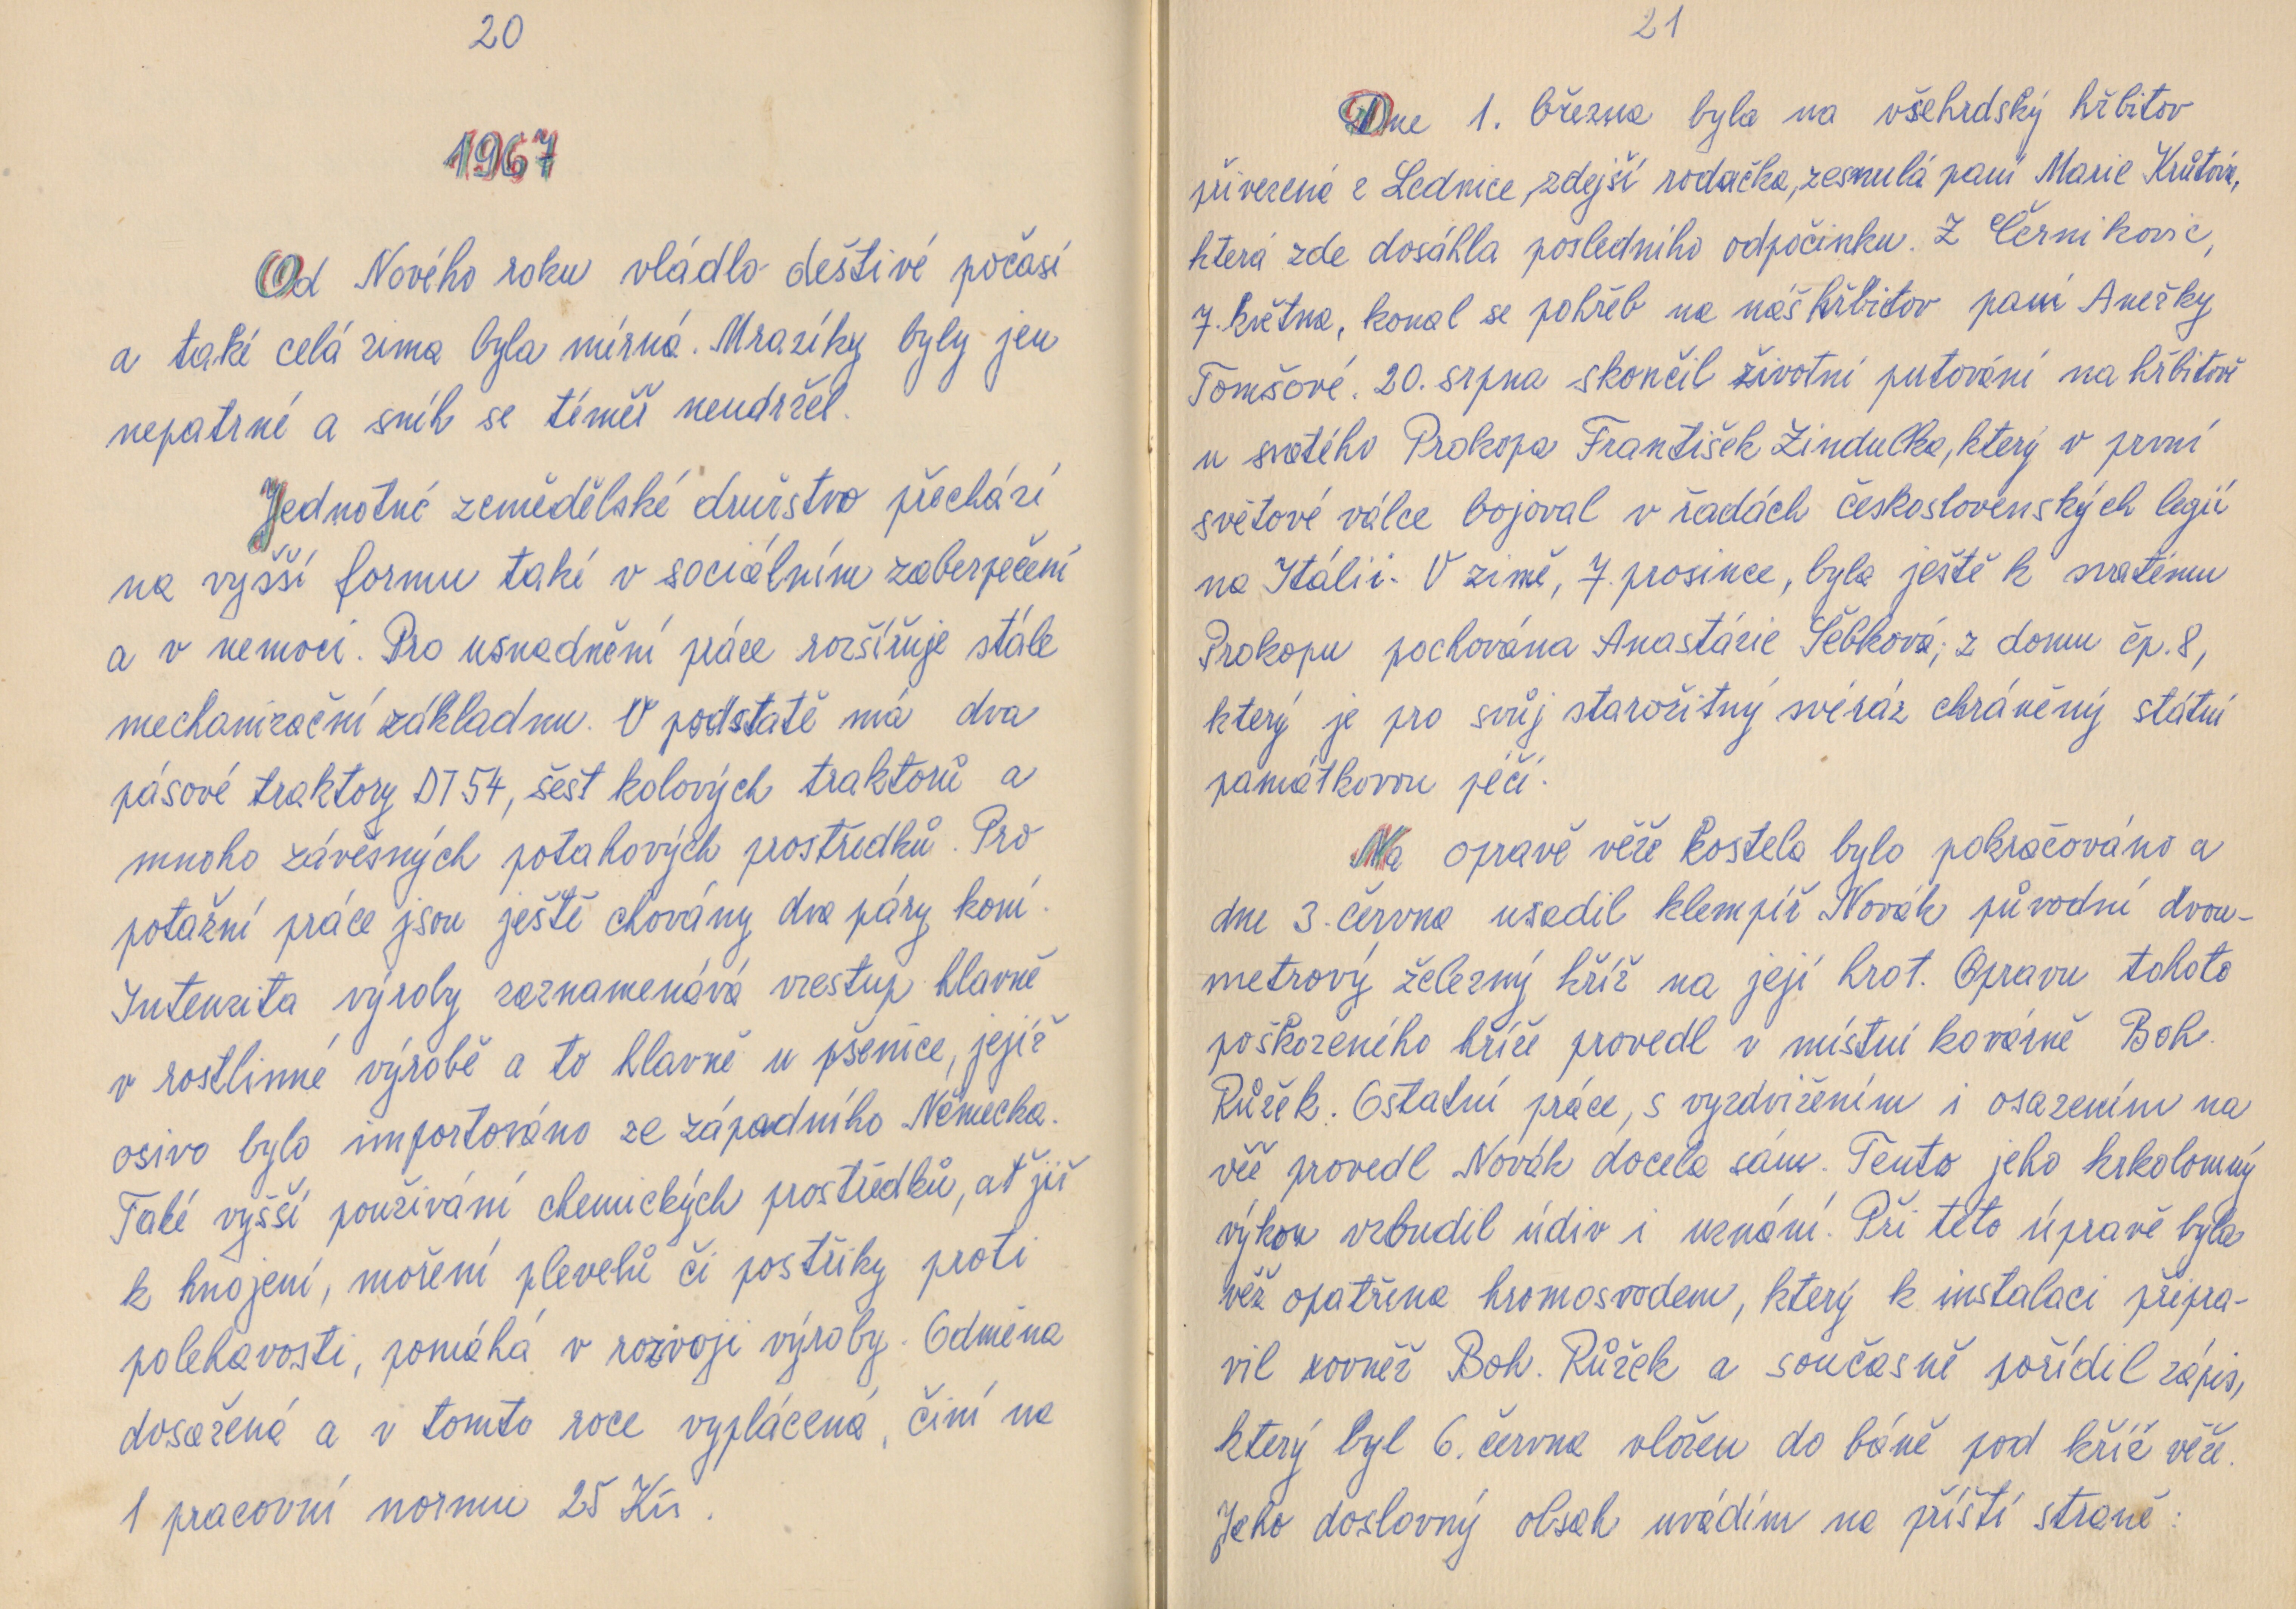 20
1967
Od Nového roku vládlo deštivé počasí
a také celá zima byla mírná. Mrazíky byly jen
nepatrné a sníh se téměř neudržel.
Jednotné zemědělské družstvo přechází
na vyšší formu také v sociálním zabezpečení
a v nemoci. Pro usnadnění práce rozšiřuje stále
mechanizační základnu. V podstatě má dva
pásové traktory DT 54, šest kolových traktorů a
mnoho závěsných potahových prostředků. Pro
potažní práce jsou ještě chovány dva páry koní.
Intenzita výroby zaznamenává vzestup hlavně
v rostlinné výrobě a to hlavně u pšenice, jejíž
osivo bylo importováno ze západního Německa.
Také vyšší používání chemických prostředků, ať již
k hnojení, moření plevelů či postřiky proti
polehavosti, pomáhá v rozvoji výroby. Odměna
dosažená a v tomto roce vyplácená, činí na
1 pracovní normu 25 Kčs.
21
Dne 1. března byla na všehrdský hřbitov
přivezená z Lednice, zdejší rodačka, zesnulá paní Marie Krůtová,
která zde dosáhla posledního odpočinku. Z Černikovic,
7. května, konal se pohřeb na náš hřbitov paní Anežky
Tomšové. 20. srpna skončil životní putování na hřbitově
u svatého Prokopa František Zindulka, který v první
světové válce bojoval v řadách československých legií
na Itálii. V zimě, 7. prosince, byla ještě k svatému
Prokopu pochována Anastázie Šebková; z domu čp. 8,
který je pro svůj starožitný svéráz chráněný státní
památkovou péčí.
Na opravě věže kostela bylo pokračováno a
dne 3. června usadil klempíř Novák původní dvou-
metrový železný kříž na její hrot. Opravu tohoto
poškozeného kříže provedl v místní kovárně Boh.
Růžek. Ostatní práce, s vyzdvižením i osazením na
věž provedl Novák docela sám. Tento jeho krkolomný
výkon vzbudil údiv i uznání. Při této úpravě byla
věž opatřena hromosvodem, který k instalaci připra-
vil rovněž Boh. Růžek a současně pořídil zápis,
který byl 6. června vložen do báně pod kříž věže.
Jeho doslovný obsah uvádím na příští straně: